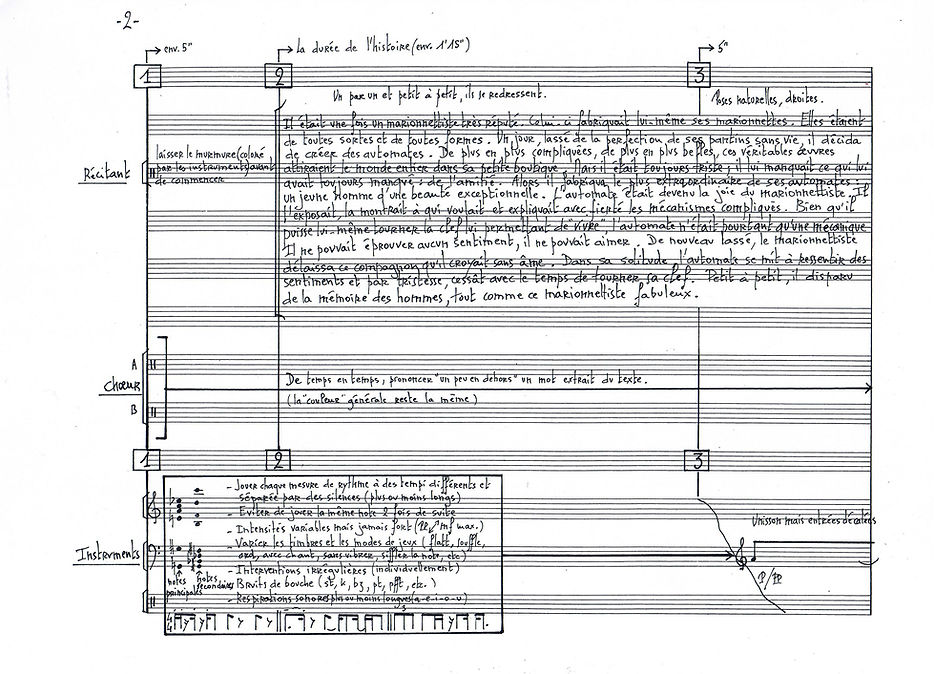 -2-
env. 5"
La durée de l'histoire (env. 1'15")
5"
1
2
3
Un par un et petit à petit, ils se redressent.
Poses naturelles, droites.
Récitant
laisser le murmure (coloré
par les instruments) avant
de commencer
Il était une fois un marionnettiste très réputé. Celui-ci fabriquait lui-même ses marionnettes. Elles étaient
de toutes sortes et de toutes formes. Un jour, lassé de la perfection de ses pantins sans vie, il décida
de créer des automates. De plus en plus compliquées, de plus en plus belles, ces véritables œuvres
attiraient le monde entier dans sa petite boutique. Mais il était toujours triste; il lui manquait ce qui lui
avait toujours manqué: de l'amitié. Alors il fabriqua le plus extraordinaire de ses automates:
un jeune homme d'une beauté exceptionnelle. L'automate était devenu la joie du marionnettiste. Il
l'exposait, la montrait à qui voulait et expliquait avec fierté les mécanismes compliqués. Bien qu'il
puisse lui-même tourner la clef lui permettant de "vivre", l'automate n'était pourtant qu'une mécanique.
Il ne pouvait éprouver aucun sentiment, il ne pouvait aimer. De nouveau lassé, le marionnettiste
délaissa ce compagnon qu'il croyait sans âme. Dans sa solitude, l'automate se mit à ressentir des
sentiments et par tristesse, cessât avec le temps de tourner sa clef. Petit à petit, il disparu
de la mémoire des hommes, tout comme ce marionnettiste fabuleux.
Chœur
A
B
De temps en temps, prononcer "un peu en dehors" un mot extrait du texte.
(la "couleur" générale reste la même)
1
2
3
Instruments
- Jouer chaque mesure de rythme à des tempi différents et
séparée par des silences (plus ou moins longs)
- Eviter de jouer la même note 2 fois de suite
- Intensités variables mais jamais fort (pp mf max.)
- Varier les timbres et les modes de jeux (flatt, souffle,
ord, avec chant, sans vibrer, siffler la note, etc)
- Interventions irrégulières (individuellement)
- Bruits de bouche (st, k, bz, pt, pfft, etc.)
- Respirations sonores plus ou moins longues (a-e-i-o-u)
notes
principales
notes
secondaires
Unisson mais entrées décalées
p/pp